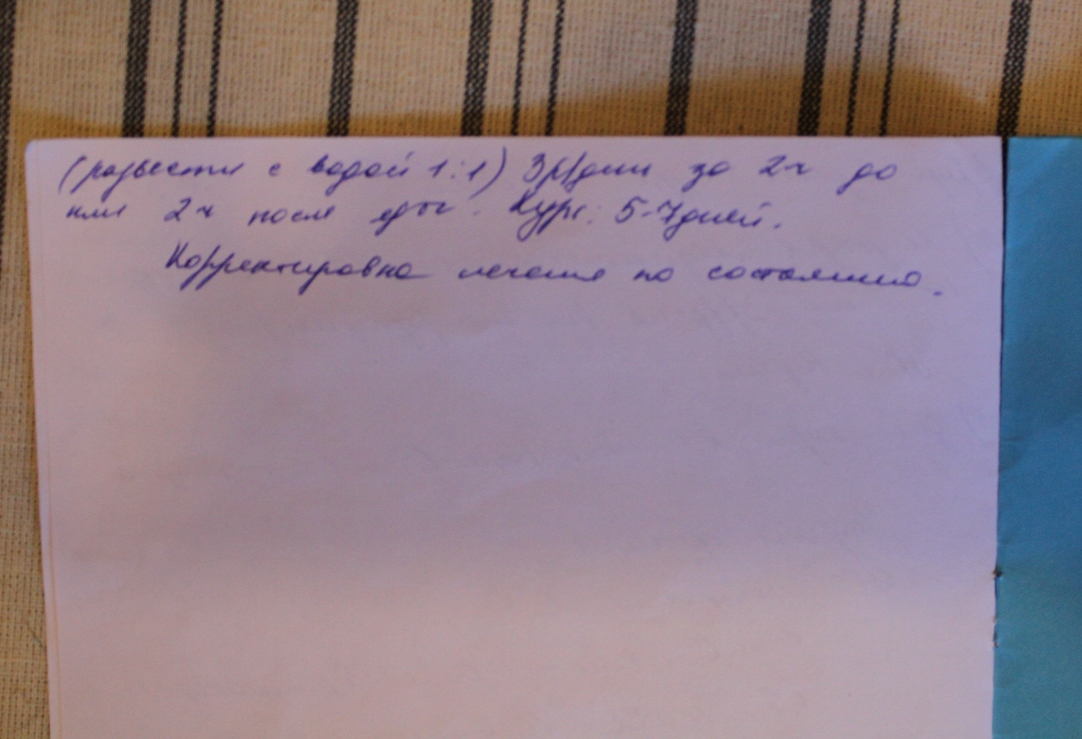 (развести с водой 1:1) 3р/день за 2ч до
или 2ч после еды. Курс: 5-7дней.
Корректировка лечения по состоянию.